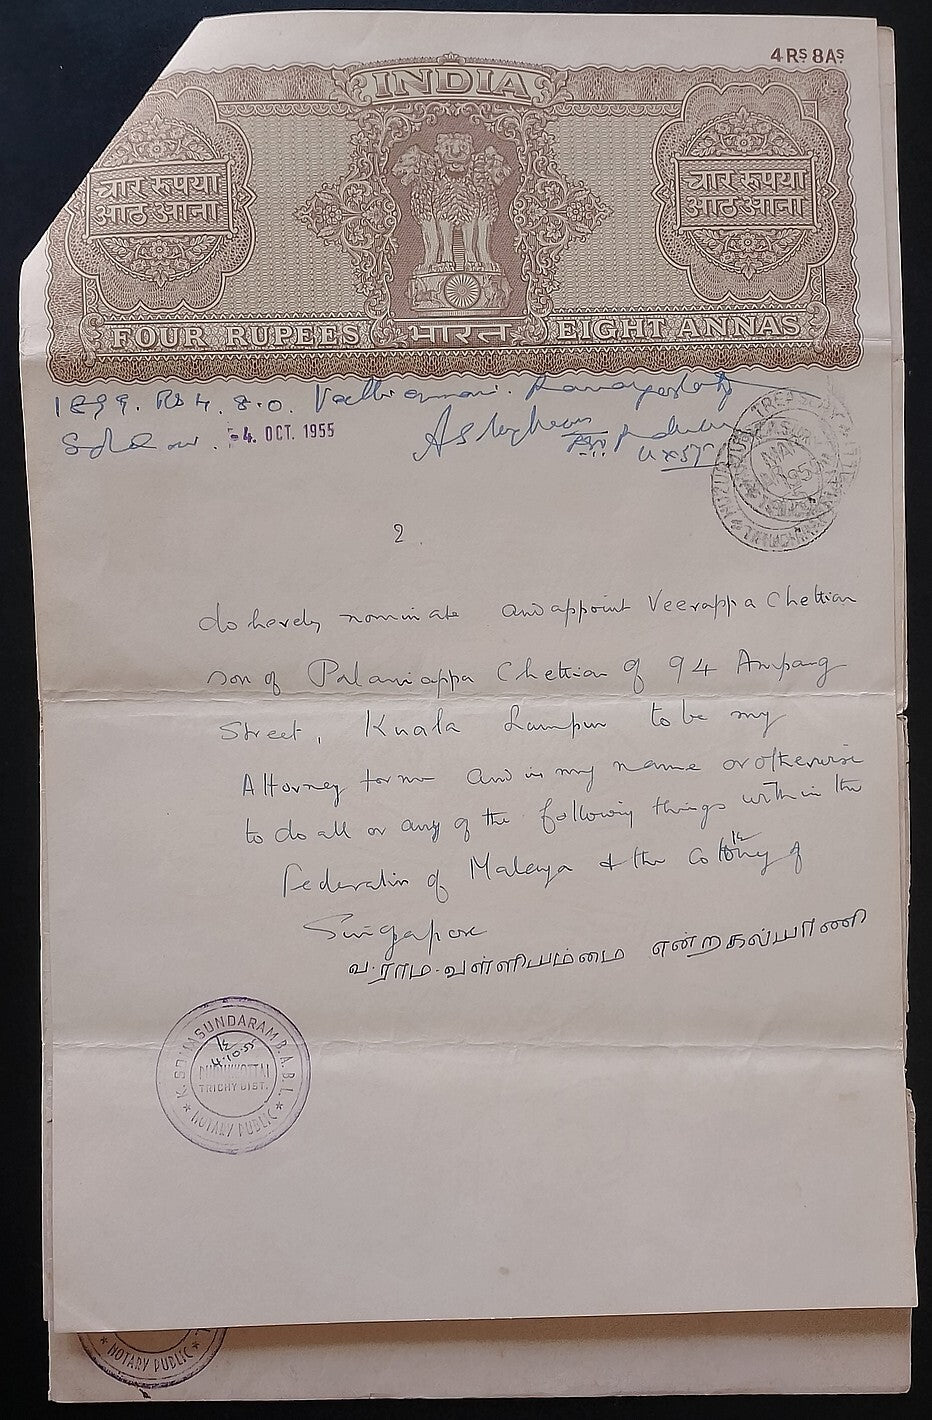 4 RS 8 AS
INDIA
चार रूपया
आठ आना
चार रूपया
आठ आना
FOUR RUPEES भारत EIGHT ANNAS
1899. Rs 4. 8.0.
-4. OCT. 1955
TREASURY
2.
do hereby nominate and appoint Veerappa Chettiar
son of Palaniappa Chettiar of 94 Ampang
Street, Kuala Lumpur to be my
Attorney for me and in my name or otherwise
to do all or any of the following things within the
Federation of Malaya & the Colony of
Singapore
வ.ராம.வள்ளியம்மை என்றகல்யாணி
K. SOMASUNDARAM B.A.B.L.
4.10.55
PUDUKKOTTAI
TRICHY DIST.
* NOTARY PUBLIC *
* NOTARY PUBLIC *